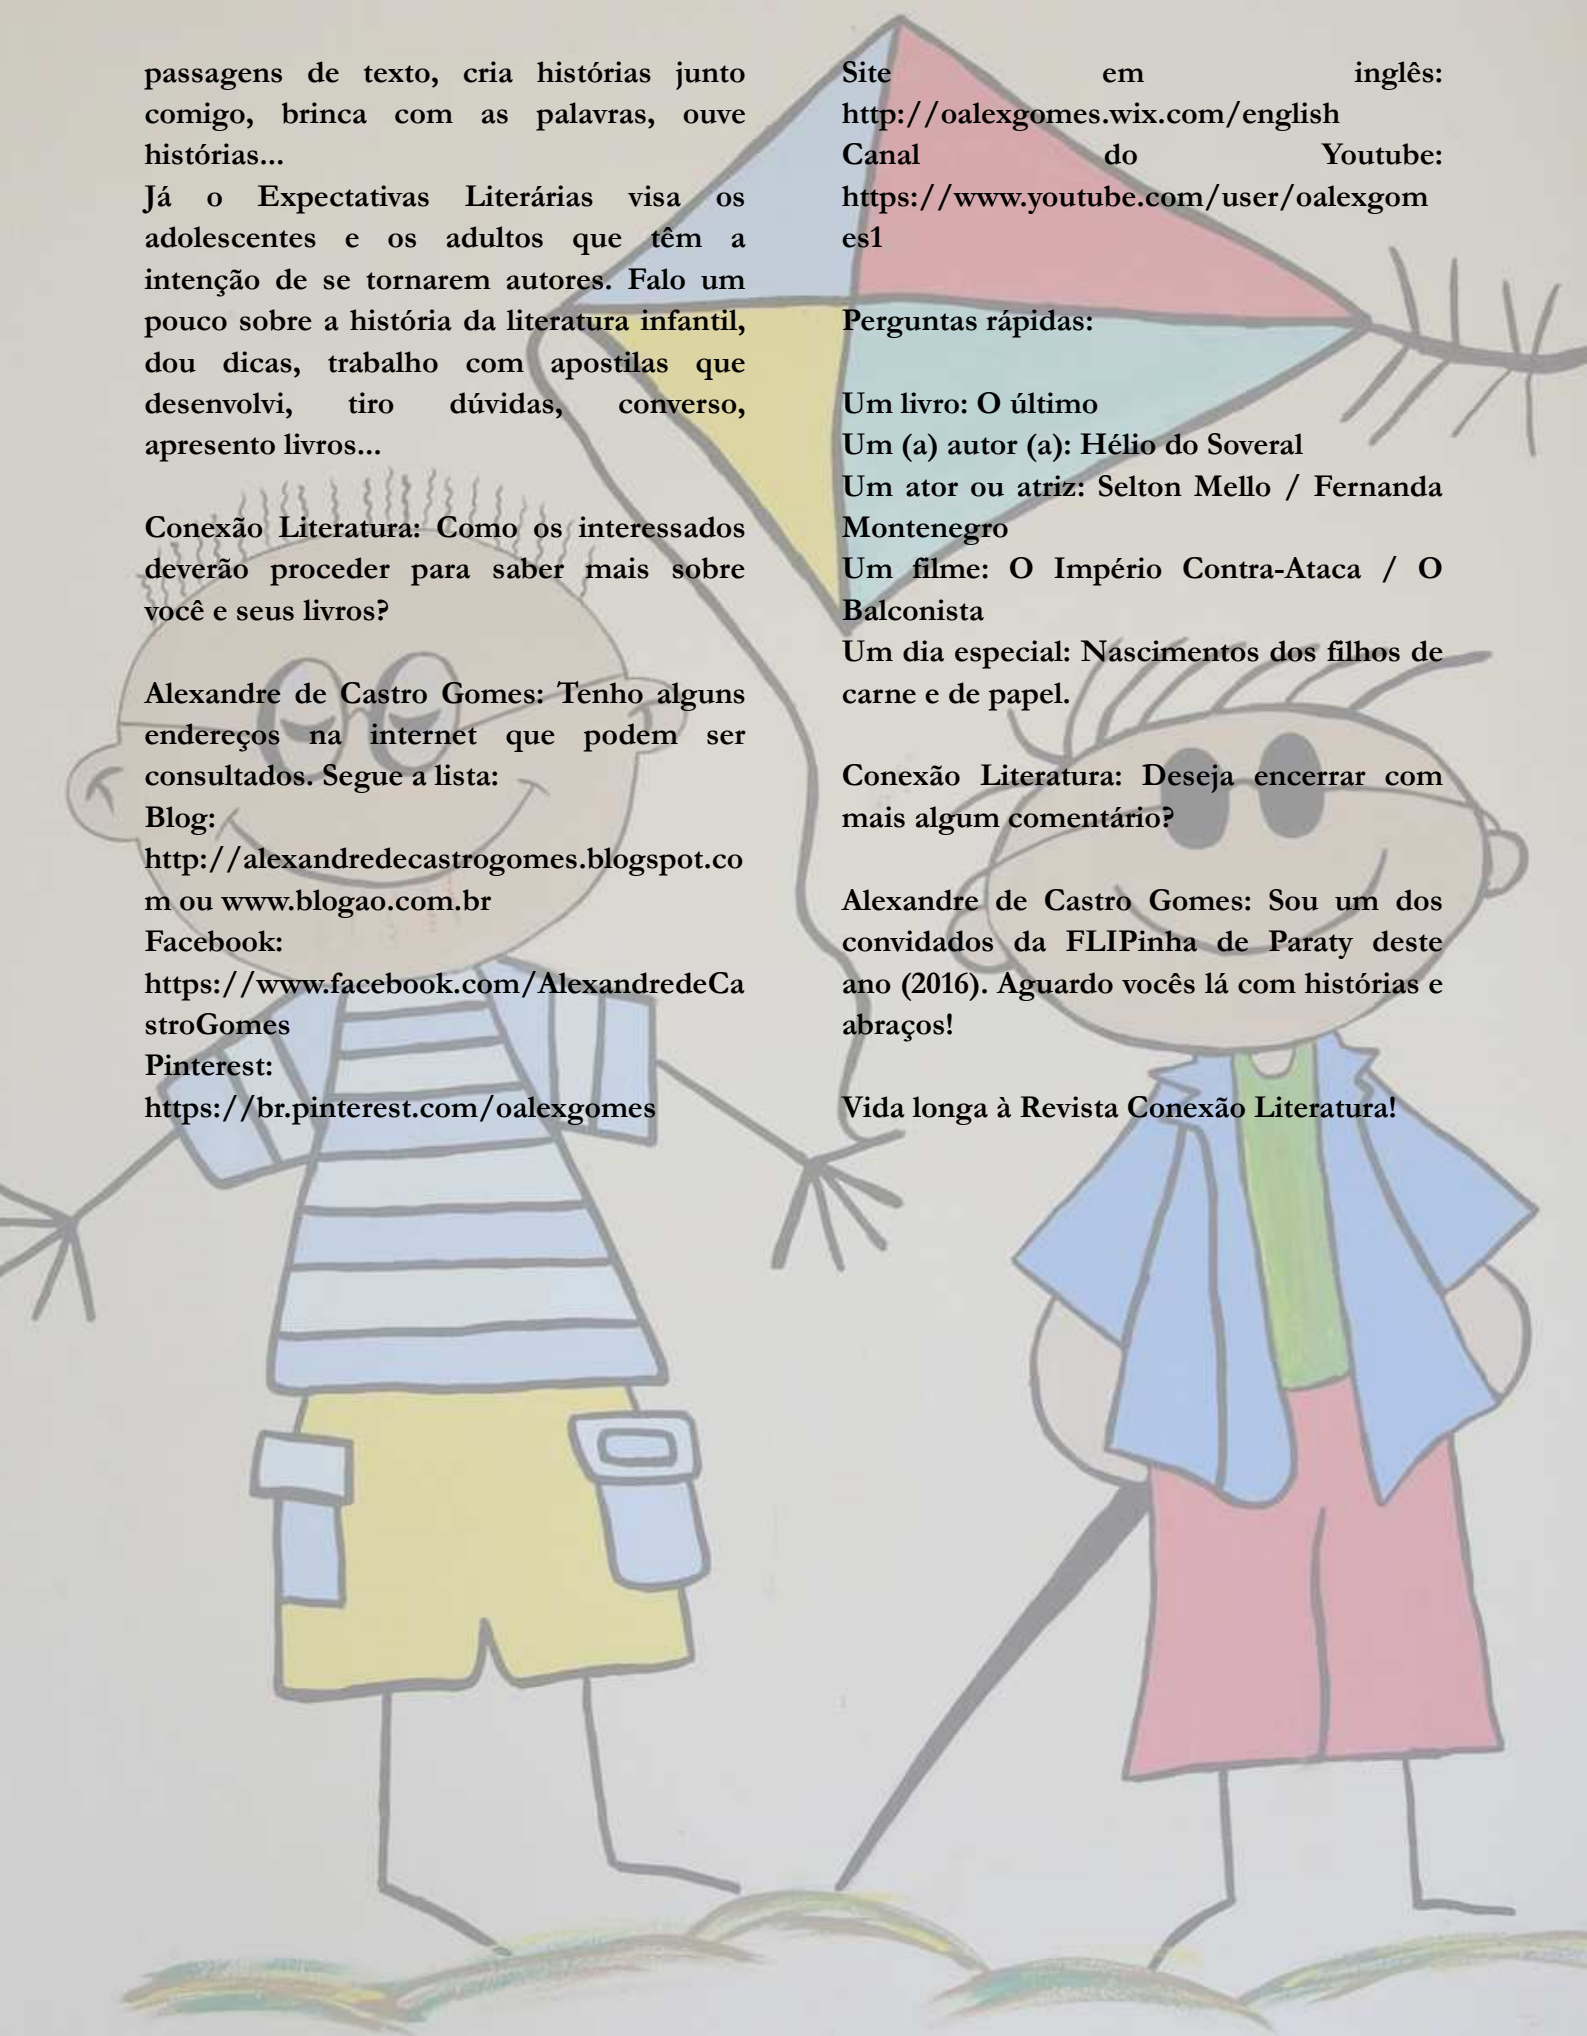 passagens de texto, cria histórias junto
comigo, brinca com as palavras, ouve
histórias...
Já o Expectativas Literárias visa os
adolescentes e os adultos que têm a
intenção de se tornarem autores. Falo um
pouco sobre a história da literatura infantil,
dou dicas, trabalho com apostilas que
desenvolvi, tiro dúvidas, converso,
apresento livros...
Conexão Literatura: Como os interessados
deverão proceder para saber mais sobre
você e seus livros?
Alexandre de Castro Gomes: Tenho alguns
endereços na internet que podem ser
consultados. Segue a lista:
Blog:
http://alexandredecastrogomes.blogspot.co
m ou www.blogao.com.br
Facebook:
https://www.facebook.com/AlexandredeCa
stroGomes
Pinterest:
https://br.pinterest.com/oalexgomes
Site em inglês:
http://oalexgomes.wix.com/english
Canal do Youtube:
https://www.youtube.com/user/oalexgom
es1
Perguntas rápidas:
Um livro: O último
Um (a) autor (a): Hélio do Soveral
Um ator ou atriz: Selton Mello / Fernanda
Montenegro
Um filme: O Império Contra-Ataca / O
Balconista
Um dia especial: Nascimentos dos filhos de
carne e de papel.
Conexão Literatura: Deseja encerrar com
mais algum comentário?
Alexandre de Castro Gomes: Sou um dos
convidados da FLIPinha de Paraty deste
ano (2016). Aguardo vocês lá com histórias e
abraços!
Vida longa à Revista Conexão Literatura!